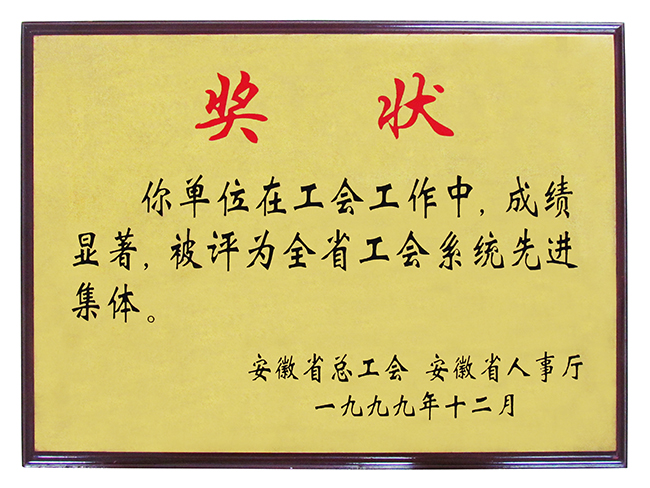 奖状
你单位在工会工作中，成绩
显著，被评为全省工会系统先进
集体。
安徽省总工会 安徽省人事厅
一九九九年十二月